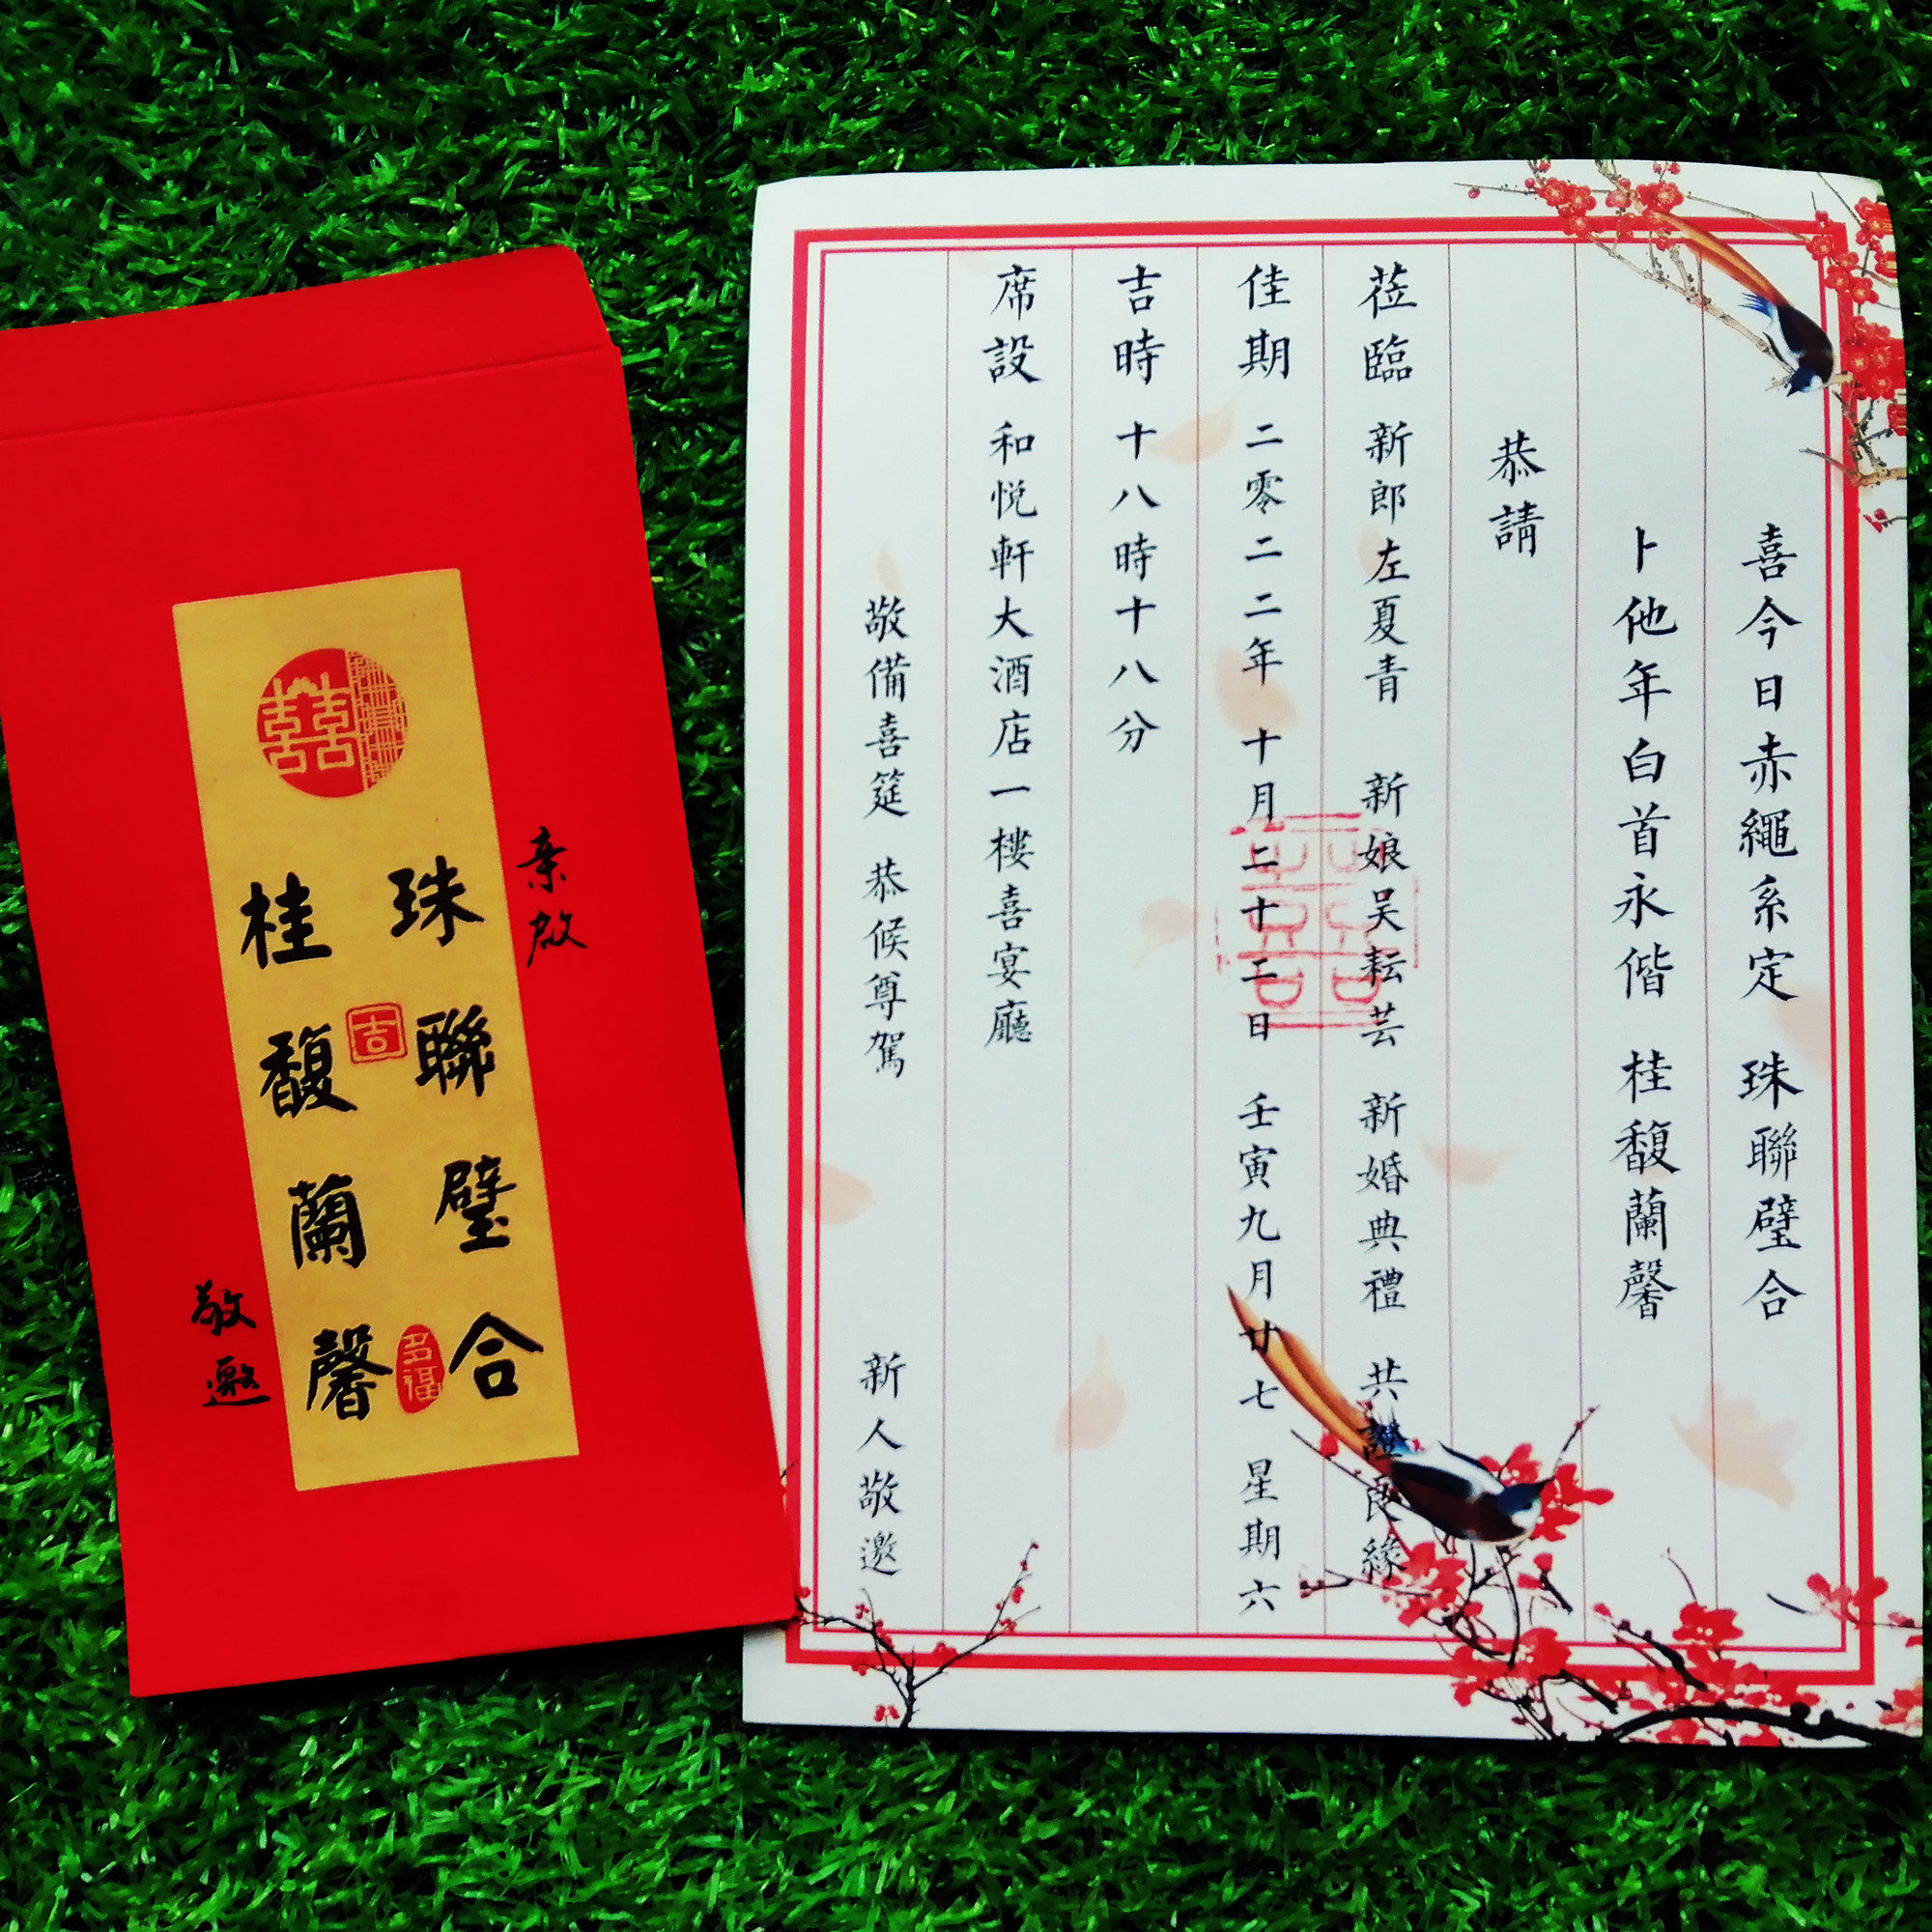 親啟
珠聯璧合
桂馥蘭馨
敬邀
囍
吉
多福
喜今日赤繩系定 珠聯璧合
卜他年白首永偕 桂馥蘭馨
恭請
蒞臨 新郎左夏青 新娘吴耘芸 新婚典禮 共證良緣
佳期 二零二二年 十月二十二日 壬寅九月廿七 星期六
吉時 十八時十八分
席設 和悦軒大酒店一樓喜宴廳
敬備喜筵 恭候尊駕 新人敬邀
囍